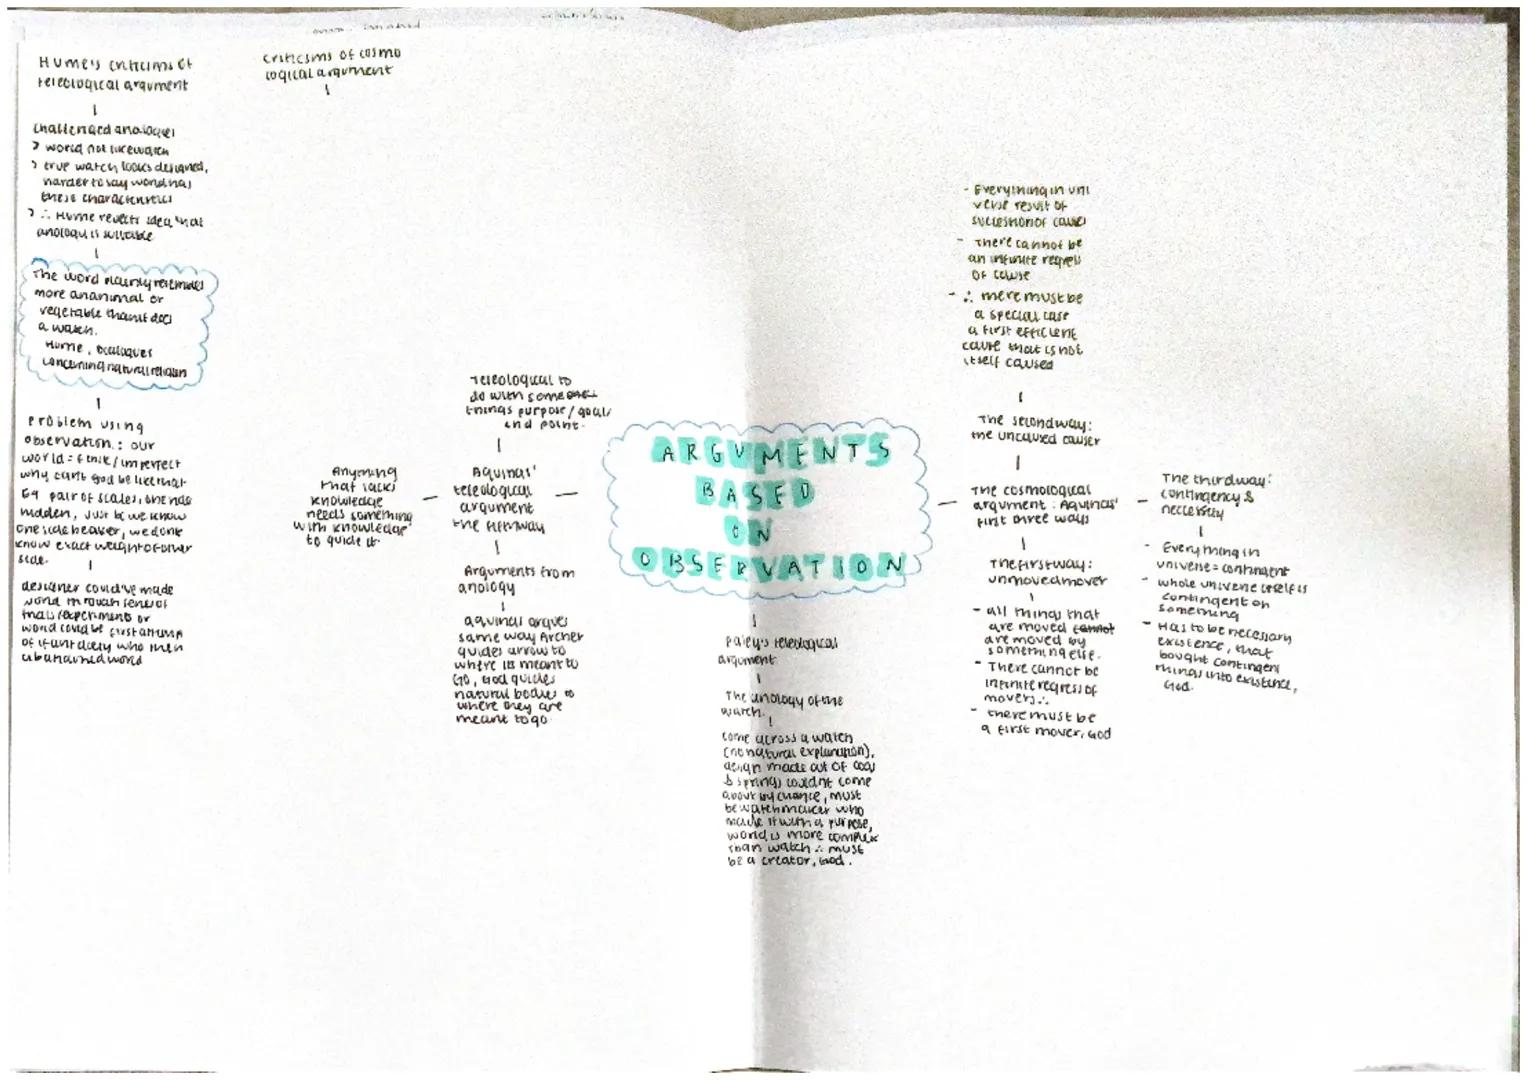 Hume's criticims of
teleological argument
challenged analogies
> world not like watch
> true watch looks designed,
harder to say world has
these characteristics
> ∴ Hume rejects idea that
anology is suitable
The world plainly resembles
more an animal or
vegetable than it does
a watch.
Hume, Dialogues
concerning natural religion
Problem using
observation: our
world = finite/imperfect
why can't god be like that
Eg pair of scales, one end
hidden, just bc we know
one side heavier, we dont
know exact weight of other
side.
designer could've made
world through series of
trials/experiments or
world could be first attempt
of infant deity who then
abandoned world
criticisms of cosmo
logical argument
Teleological to
do with some
things purpose/goal/
end point.
Aquinas'
teleological
argument
the fifth way
Anything
that lacks
knowledge
needs something
with knowledge
to guide it.
Arguments from
anology
aquinas argues
same way Archer
guides arrow to
where its meant to
Go, God guides
natural bodies to
where they are
meant to go
ARGUMENTS
BASED
ON
OBSERVATION
Paley's teleological
argument
The anology of the
watch.
come across a watch
(no natural explanation),
design made out of cogs
& springs couldnt come
about by chance, must
be watchmaker who
made it with a purpose,
world is more complex
than watch ∴ must
be a creator, God.
- Everything in uni
verse result of
succession of causes
- There cannot be
an infinite regress
of cause
- ∴ there must be
a special case
a first efficient
cause that is not
itself caused
The second way:
the uncaused causer
The cosmological
argument: Aquinas'
first three ways
The first way:
unmoved mover
- all things that
are moved cannot
are moved by
something else.
- There cannot be
infinite regress of
movers ∴
- there must be
a first mover, God
The third way:
contingency &
necessity
- Everything in
universe = contingent
- whole universe itself is
contingent on
something
- Has to be necessary
existence, that
bought contingent
things into existence,
God.